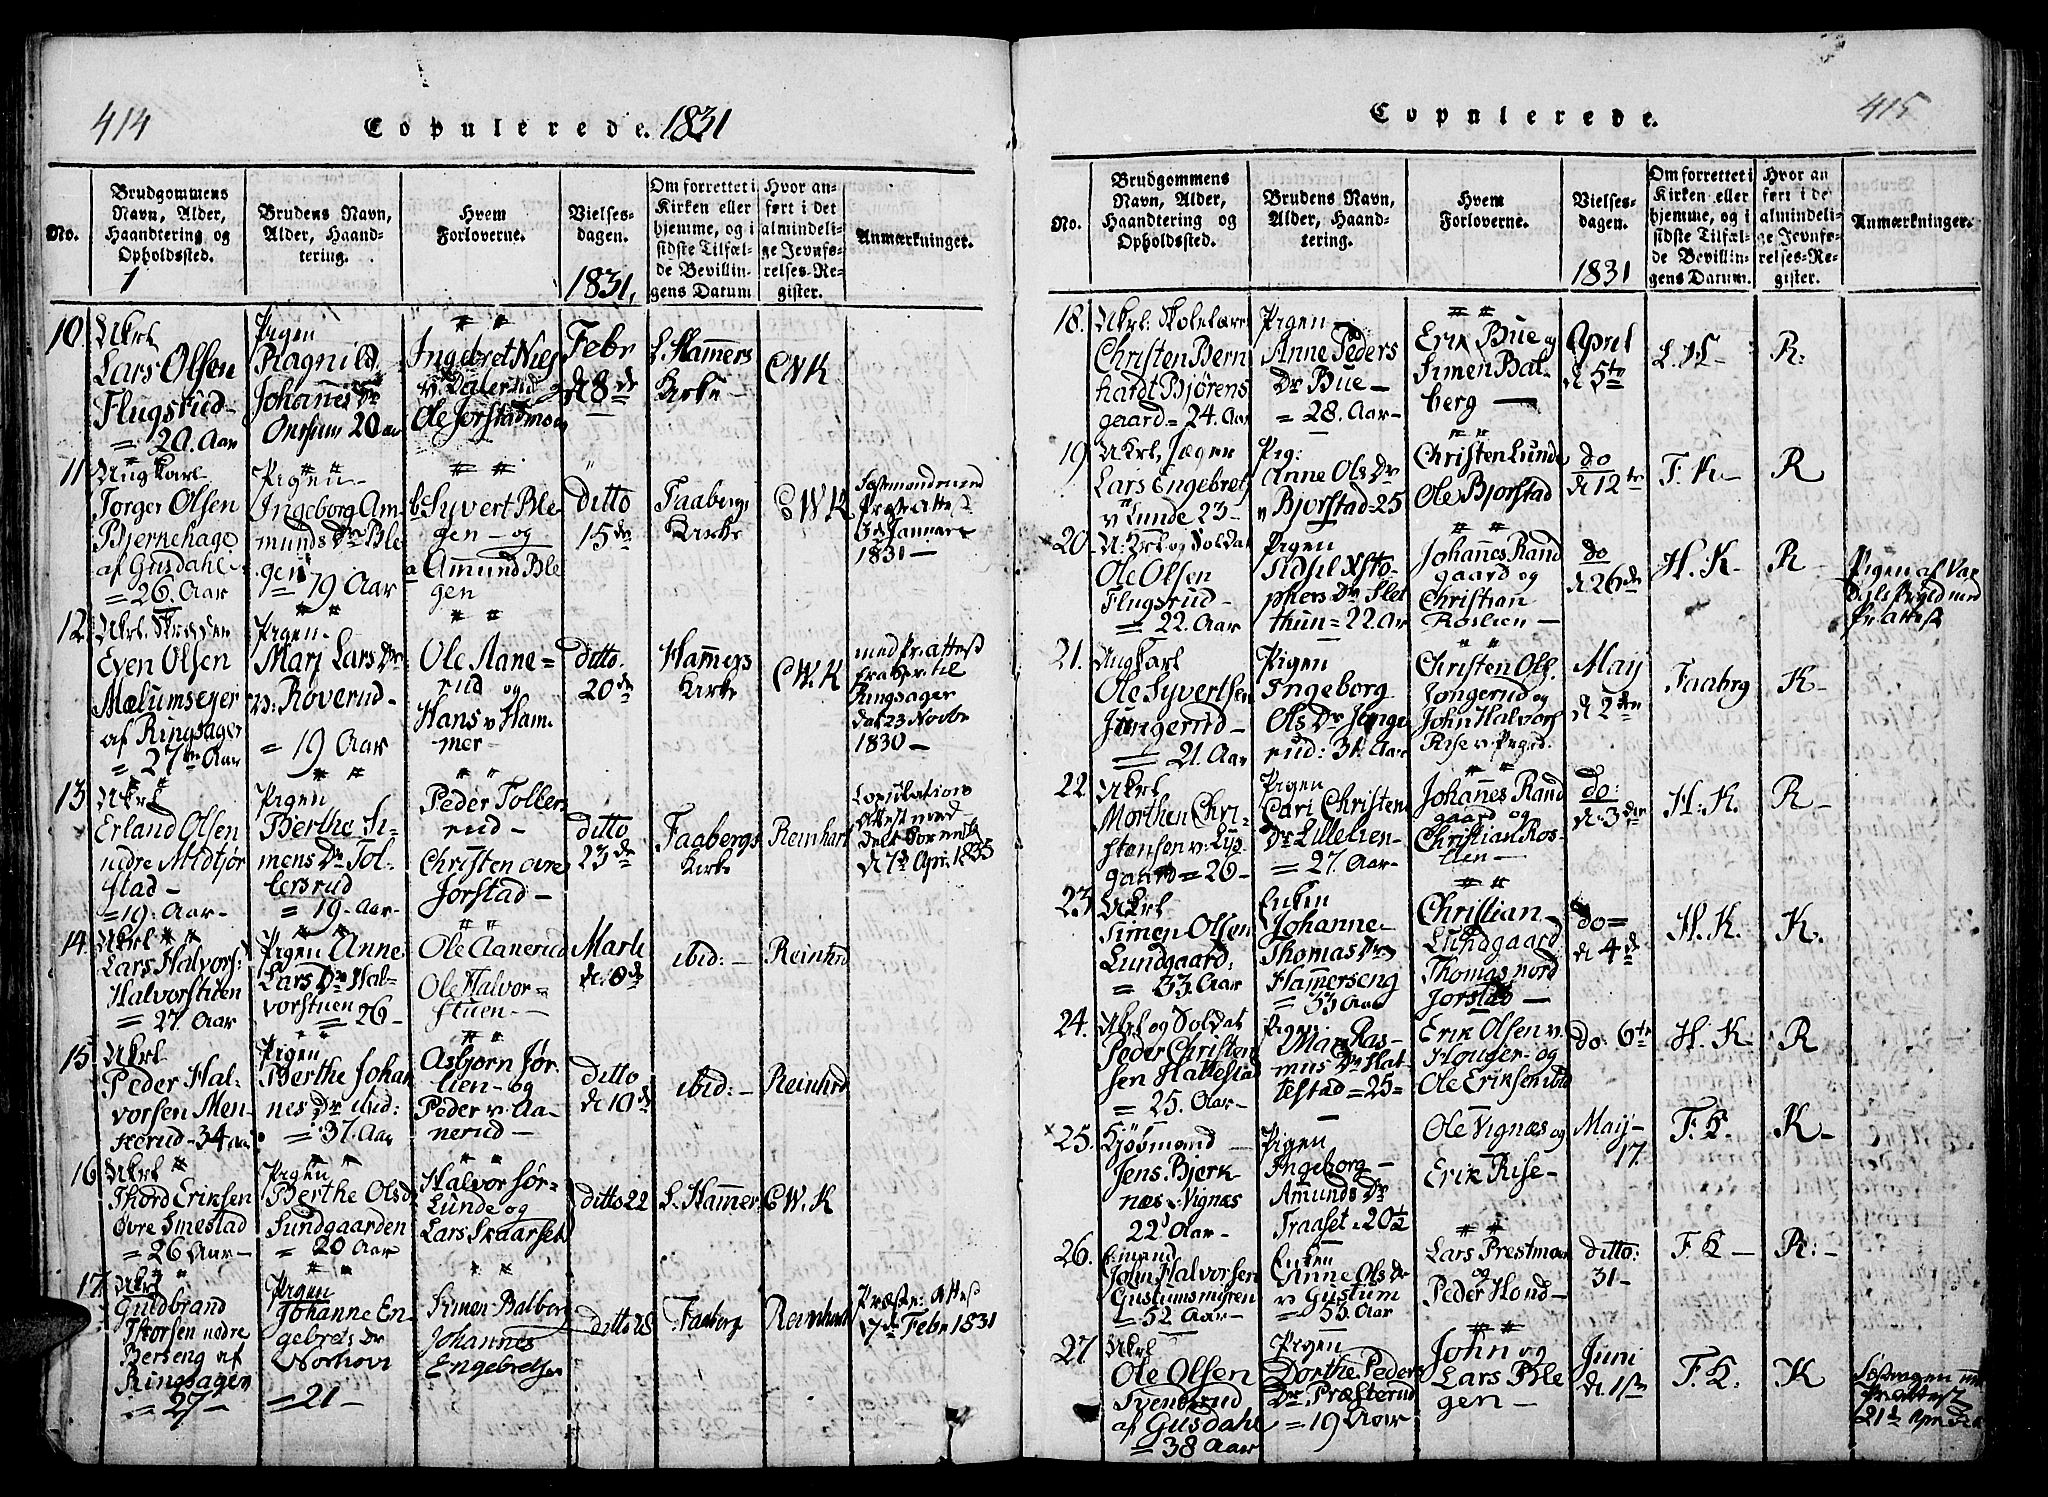 414
Copulerede. 1831
No.
Brudgommens Navn, Alder, Haandtering og Opholdssted.
Brudens Navn, Alder, Haandtering.
Hvem Forloverne.
Vielsesdagen.
1831,
Om forrettet i Kirken eller hjemme, og i sidste Tilfælde Bevillingens Datum
Hvor anført i det almindelige Jevnførelses-Register.
Anmærkninger.
10.
Ukrl
Lars Olsen
Flugsrud-
= 20. Aar
Pigen
Ragnild
Johannes Dr
20 aar
Ingebret Niels
v. Dalerud og
Ole Jorstadmoen
Febr
d 8de
L. Hamers
Kirke -
CWK
11
Ungkarl
Torger Olsen
Bjernehage
af Gusdahl -
= 26. Aar
Pigen -
Ingeborg Am-
munds Dr Ble
gen
19 Aar
b Syvert Ble
gen - og
a Amund Ble
gen
Ditto
15de
Faabergs
Kirke
CWK
med
Præste Attest
Januari
1831 -
12.
Ukrl. Skrædder
Even Olsen
Mælumseyer
af Ringsager
= 27 Aar
Pigen -
Mari Lars Dr
v: Röverud -
= 19 Aar
Ole Aane=
rud og
Hans v Ham
mer -
ditto.
20de
Hamers
Kirke
CWK
med Pr: Attest
fra
Ringsager
dat 23 Novbr
1830 -
13.
Ukrl
Erland Olsen
nedre Midtjör
stad -
= 19. Aar -
Pigen
Berthe Si-
mens Dr Tol-
lersrud
= 19. Aar -
Peder Tollers
rud -
Christen övre
Jörstad -
ditto
23de
Faabergs
Kirke
Reinhart
Copulations
Attest med
delt
d 7d Apr. 1835
14.
Ukrl
Lars Halvors:
Halvorstuen
= 27. Aar
Pigen Anne
Lars Dr Hal-
vorstuen
= 26 -
Ole Aanerud
Ole Halvor=
stuen -
Marti
d. 8de
ibid: -
Reinhrd
15
Ukrl
Peder Hal-
vorsen Men-
kerud - 34 aar
Pigen
Berthe Johan
nes Dr ibid:
= 37. Aar
Asbjorn Jör-
lien - og
Peder v: Aa-
nerud -
Ditto
d 10de
ibid: -
Reinhrd
16
Ukrl
Thord Eriksen
Övre Smestad
= 26 Aar -
Pigen
Berthe Olsdr
Sundgaarden
= 20 Aar
Halvor Sör-
Lunde og
Lars Skaarset
ditto 22
L. Hamer.
C.W.K
17.
Ukrl
Guldbrand
Thorsen nedre
Berseng af
Ringsager
= 27 -
Pigen
Johanne En
gebrets Dr
Norhovi
= 21 -
Simen Balberg
Johannes
Engebretsen
ditto 28
Faaberg
Reinhart
Præste: Attest
7de Febr 1831
415
Copulerede.
No.
Brudgommens Navn, Alder, Haandtering og Opholdssted.
Brudens Navn, Alder, Haandtering.
Hvem Forloverne.
Vielsesdagen.
1831
Om forrettet i Kirken eller hjemme, og i sidste Tilfælde Bevillingens Datum.
Hvor anført i de almindelige Jevnførelses-Register.
Anmærkninger.
18.
Ukrl: Skolelærer
Christen Bern
hardt Bjørens
gaard = 24. Aar
Pigen -
Anne Peders
Dr Bue -
= 28. Aar -
Erik Bue og
Simen Bal-
berg -
April
d 5te
R:
19
Ukrl. Jæger
Lars Engebrets
v Lunde 23 -
Pig:
Anne Ols Dr
v Bjorstad = 25
Christen Lunde
Ole Bjorstad
do
d 12te
F. K -
R
20.
U: Krl og Soldat
Ole Olsen
Flugsrud -
= 22. Aar
Pigen
Sidsil Xsto-
phers Dr Slet
thun = 22 Aar
Johannes Rand
gaard og
Christian
Roslien -
do
d 26de
H. K -
R -
Pigen af Var
dal med
Pr: attest
21.
Ungkarl
Ole Syvertsen
Jungerud -
= 21. Aar
Pigen
Ingeborg
Ols Dr Junge
rud: 31. Aar
Christen Ols.
Jongerud og
John Halvors
Rise v:
May
d 2den
Faabrg
K -
22
Ukrl
Morthen Chri-
stensen v: Lys
gaard = 26 -
Pigen
Cari Christens
Dr Lillelien -
= 27. Aar
Johannes Rand
gaard og
Christian Ros-
lien -
do:
d. 3die
H: K.
R -
23
Ukrl
Simen Olsen
Lundgaard:
= 33. Aar
Enken
Johanne -
Thomas Dr
Hamerseng
= 53 Aar
Christian -
Lundgaard
Thomas nord
Jorstad -
do =
d 4de
H. K.
K.
24.
Ukrl og Soldat
Peder Christen
sen Hattestad
= 25. Aar -
Pigen:
Mari Ras-
mus Dr Hat-
testad = 25 =
Erik Olsen v:
Houger - og
Ole Eriksen ibid
do: 6te
H. K -
R
x 25.
Kjøbmand
Jens. Bjerk
næs v: Vignæs
22 Aar -
Pigen
Ingeborg -
Amunds Dr
Traaset = 20 1/2
Ole Vignæs og
Erik Rise -
May -
17.
F. K -
K -
26.
Enkmand
John Halvorsen
Gustumsmyren
= 52 Aar -
Enken
Anne Ols Dr
v Gustum
= 53. Aar
Lars Prestmoen
og
Peder Hond -
ditto:
31 -
F. K -
R: -
27
Ukrl
Ole Olsen
Svenerud
af Gusdahl
= 38 Aar
Pigen
Dorthe Peders
Dr Præsterud
= 19 Aar
John og
Lars Ble
gen -
Juni
d. 1ste
F. K -
K
Prattest